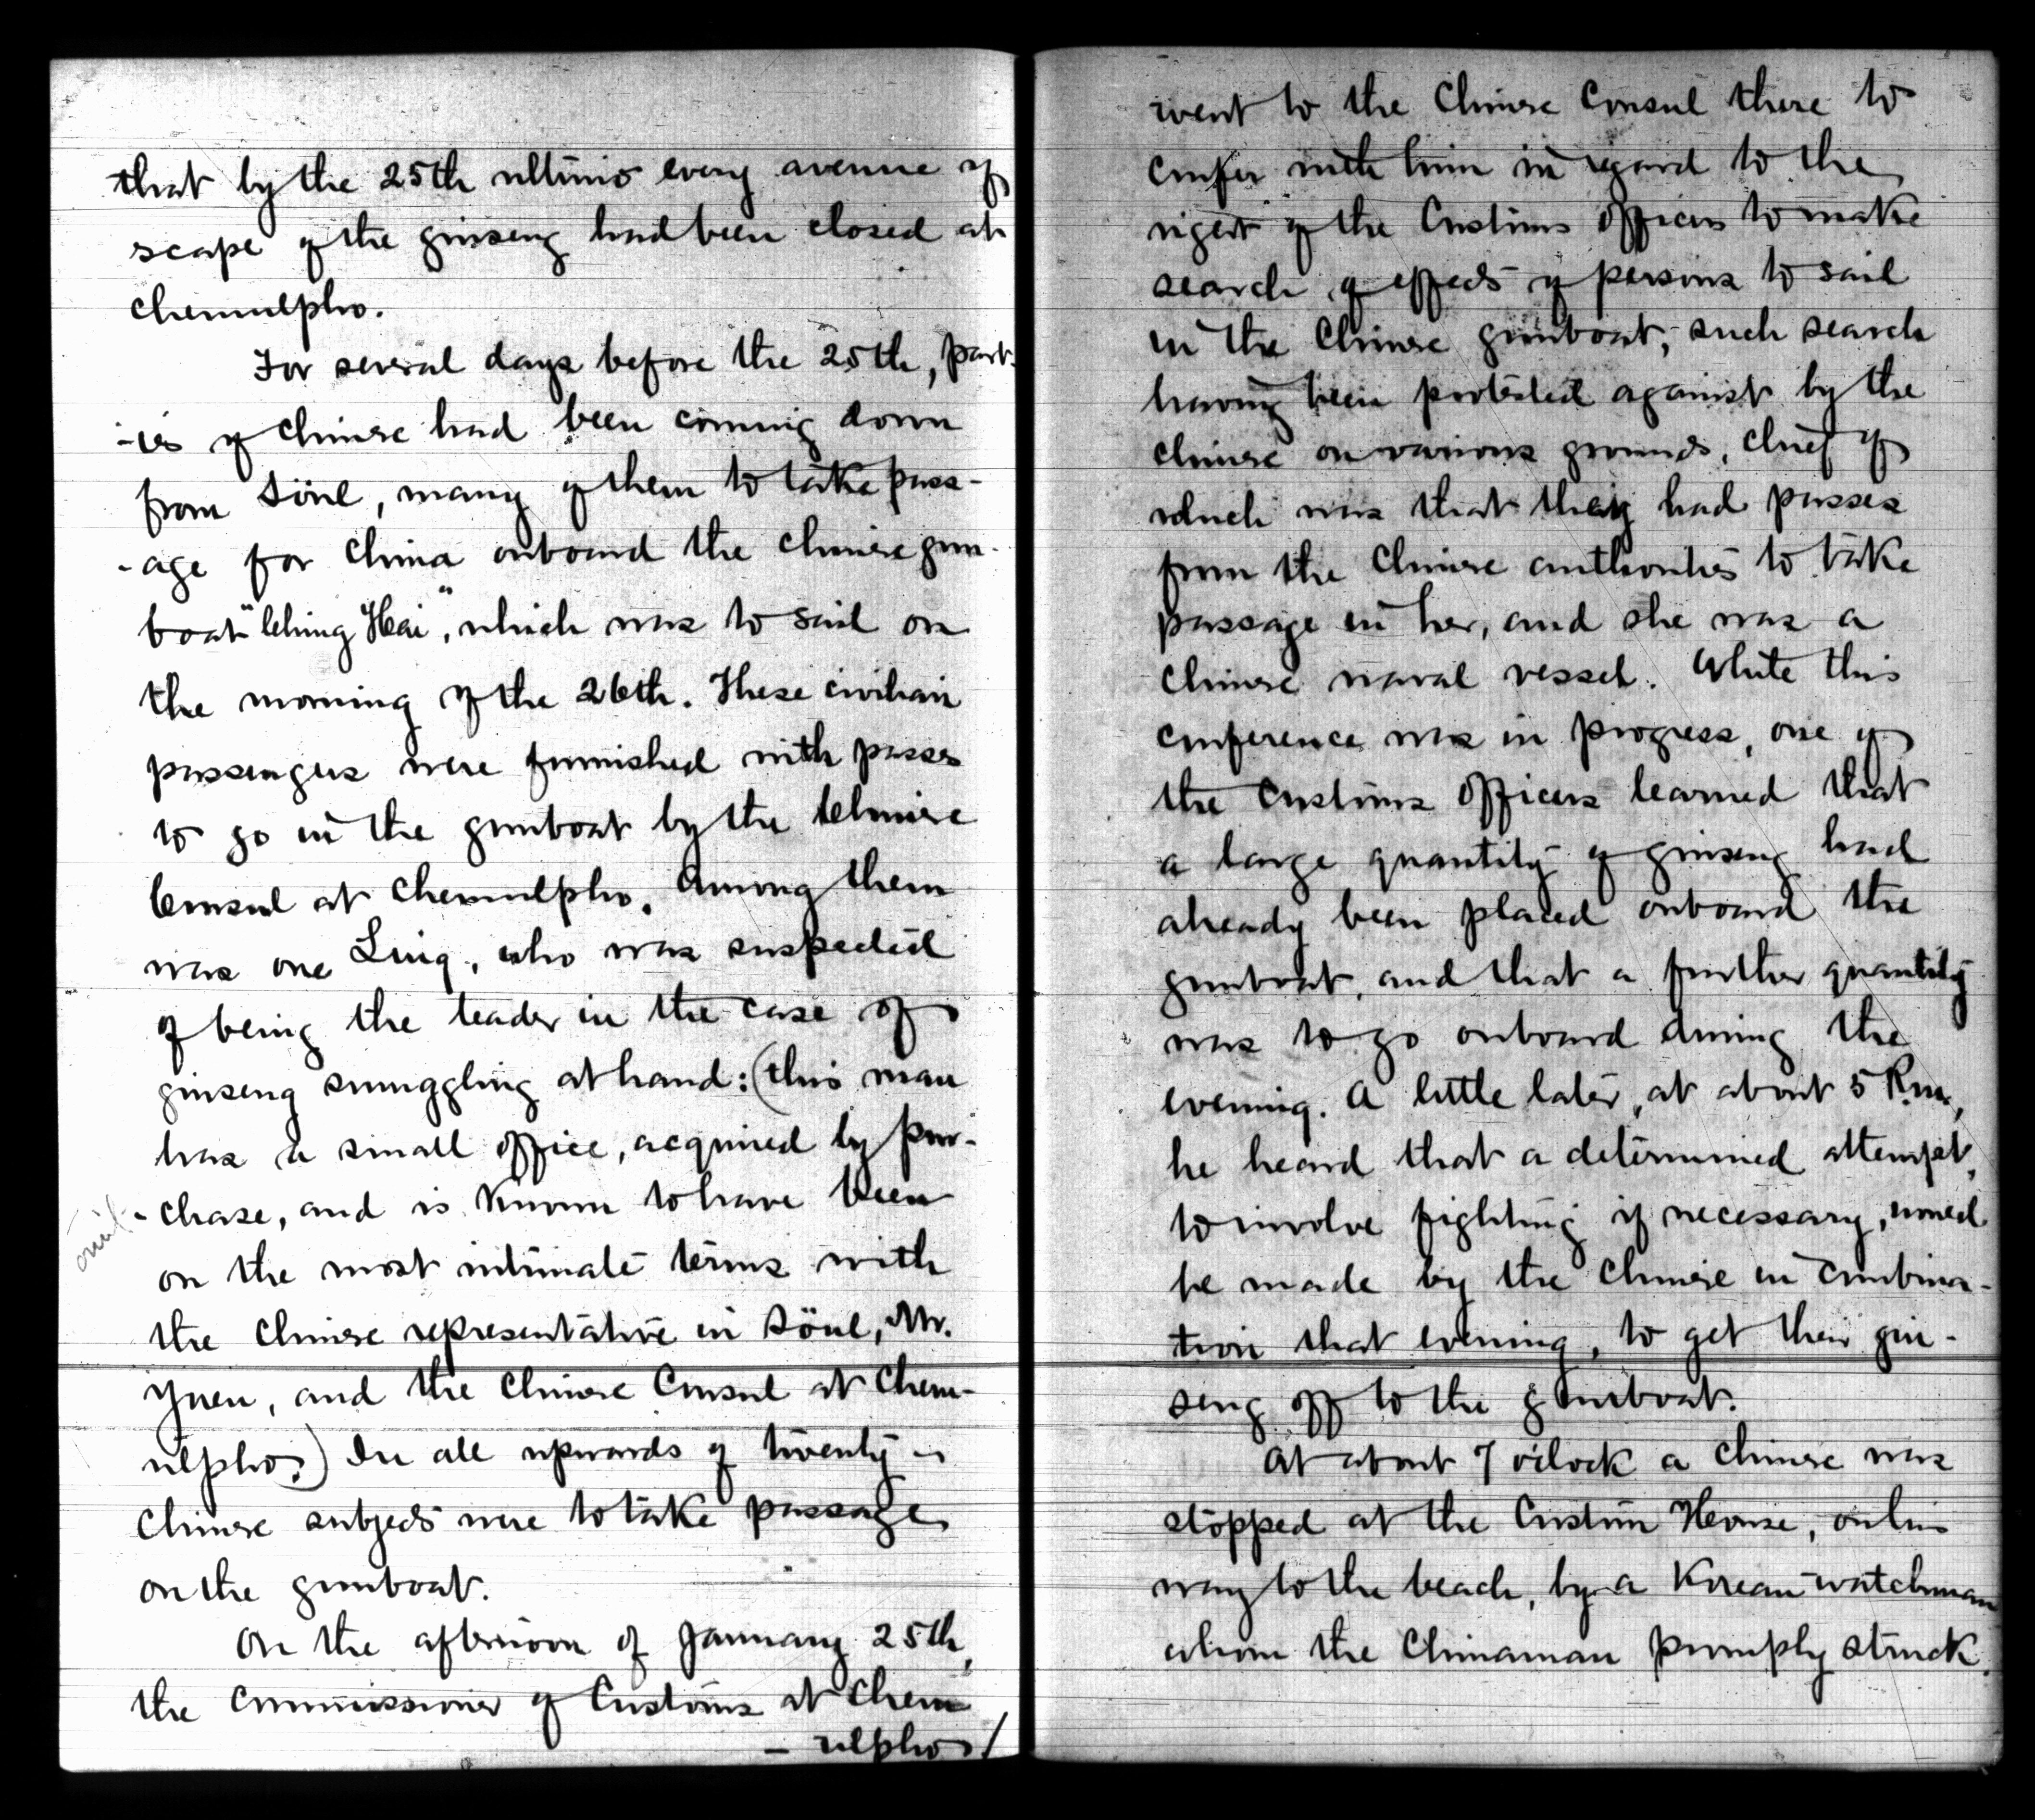 that by the 25th ultimo every avenue of
scape of the ginseng had been closed at
Chemulpho.
For several days before the 25th, part-
-ies of Chinese had been coming down
from Söul, many of them to take pass-
-age for China onboard the Chinese gun-
boat "Ching Hai", which was to sail on
the morning of the 26th. These civilian
passengers were furnished with passes
to go in the gunboat by the Chinese
Consul at Chemulpho. Among them
was one Ling, who was suspected
of being the leader in the case of
ginseng smuggling at hand: (this man
has a small office, acquired by pur-
-chase, and is known to have been
omit
on the most intimate terms with
the Chinese representative in Söul, Mr.
Yuen, and the Chinese Consul at Chem-
ulpho.) In all upwards of twenty
Chinese subjects were to take passage
on the gunboat.
On the afternoon of January 25th,
the Commissioner of Customs at Chem
- ulpho /
went to the Chinese Consul there to
confer with him in regard to the
right of the Customs Officers to make
search of effects of persons to sail
in the Chinese gunboat, such search
having been protested against by the
Chinese on various grounds, chief of
which was that they had passes
from the Chinese authorities to take
passage in her, and she was a
Chinese naval vessel. While this
conference was in progress, one of
the Customs Officers learned that
a large quantity of ginseng had
already been placed onboard the
gunboat, and that a further quantity
was to go onboard during the
evening. A little later, at about 5 P.m.,
he heard that a determined attempt,
to involve fighting if necessary, would
be made by the Chinese in combina-
tion that evening, to get their gin-
seng off to the gunboat.
At about 7 o'clock a Chinese was
stopped at the Custom House, on his
way to the beach, by a Korean watchman
whom the Chinaman promply struck.